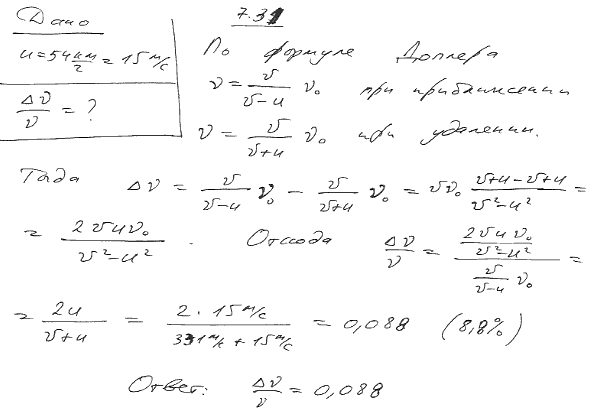 7.31
Дано
u = 54 км/г = 15 м/с
Δν/ν = ?
По формуле Доплера
ν = v/(v−u) ν₀ при приближении
ν = v/(v+u) ν₀ при удалении.
Тогда Δν = v/(v−u) ν₀ − v/(v+u) ν₀ = vν₀ (v+u−v+u)/(v²−u²) =
= 2vuν₀/(v²−u²) . Отсюда Δν/ν = (2vuν₀/(v²−u²))/(v/(v−u) ν₀) =
= 2u/(v+u) = 2·15 м/с/(331 м/с + 15 м/с) = 0,088 (8,8%)
Ответ: Δν/ν = 0,088